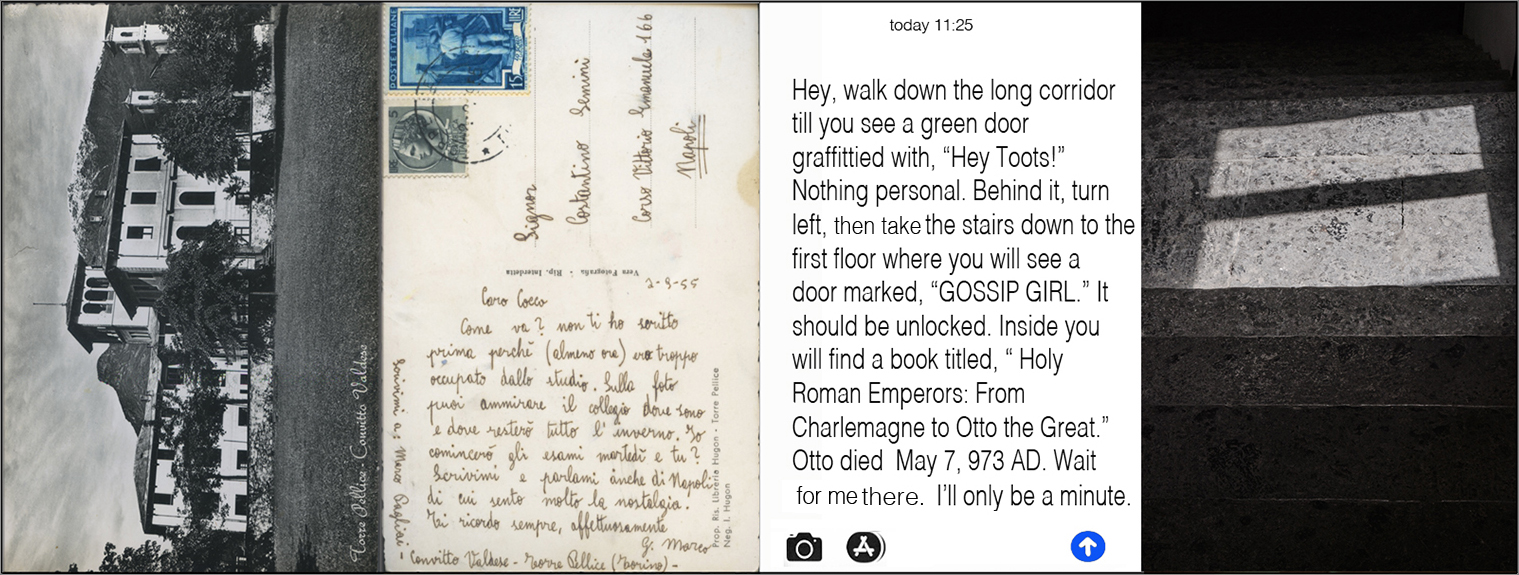 Torre Pellice - Convitto Valdese
POSTE ITALIANE
15 LIRE
5
Signor
Costantino
Corso Vittorio Emanuele 166
Napoli
Vera Fotografia - Rip. Interdetta
Caro Cocco
Come va? non ti ho scritto
prima perchè (almeno ora) ero troppo
occupato dallo studio. Sulla foto
puoi ammirare il collegio dove sono
e dove resterò tutto l'inverno. Io
comincerò gli esami martedì e tu?
Scrivimi e parlami anche di Napoli
di cui sento molto la nostalgia.
Ti ricordo sempre, affettuosamente
G. Marco
Scrivimi a: Marco Pagliai -
Convitto Valdese - Torre Pellice (Torino) -
Prop. Ris. Libreria Hugon - Torre Pellice
Neg. I. Hugon
today 11:25
Hey, walk down the long corridor
till you see a green door
graffittied with, “Hey Toots!”
Nothing personal. Behind it, turn
left, then take the stairs down to the
first floor where you will see a
door marked, “GOSSIP GIRL.” It
should be unlocked. Inside you
will find a book titled, “ Holy
Roman Emperors: From
Charlemagne to Otto the Great.”
Otto died May 7, 973 AD. Wait
for me there. I’ll only be a minute.